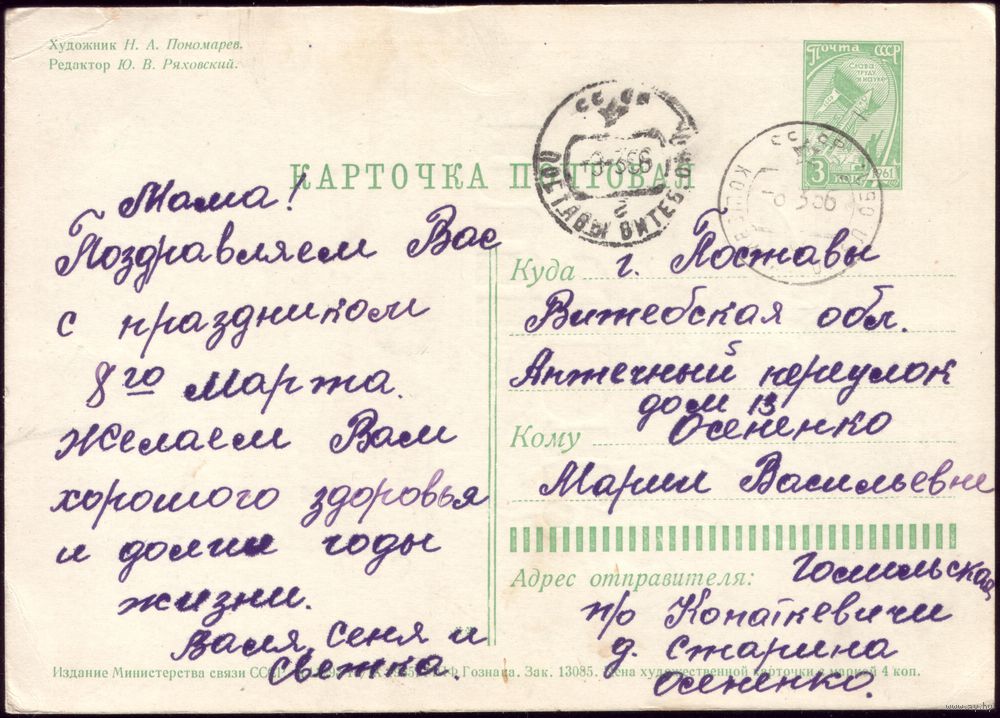 Художник Н. А. Пономарев.
Редактор Ю. В. Ряховский.
Почта СССР
Слава
труду
и науке
3 коп. 1961
КАРТОЧКА ПОЧТОВАЯ
Мама!
Поздравляем Вас
с праздником
8го Марта.
Желаем Вам
хорошого здоровья
и долгие годы
жизни.
Валя, Сеня и
Светка.
Куда г. Поставы
Витебская обл.
Аптечный 5 переулок
дом 13
Кому Осененко
Марии Васильевне
Адрес отправителя: Гомельская,
п/о Копаткевичи
д. Старина
Осененко.
Издание Министерства связи СССР Гознака. Зак. 13085. Цена художественной карточки с маркой 4 коп.
www.ay.by